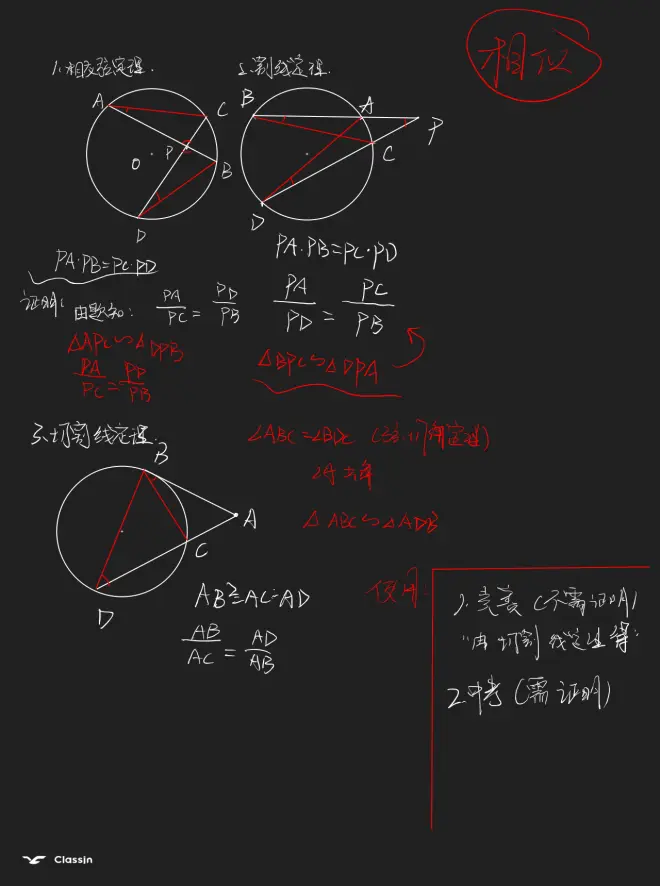 相似
1.相交弦定理.
2.割线定理.
A
C
P
O
B
D
B
A
P
C
D
PA·PB=PC·PD
PA·PB=PC·PD
证明: 由题知: PA/PC = PD/PB
PA/PD = PC/PB
△APC∽△DPB
PA/PC = PD/PB
△BPC∽△DPA
3.切割线定理.
∠ABC=∠BDC (弦切角定理)
B
A
C
D
△ABC∽△ADB
AB²=AC·AD
AB/AC = AD/AB
使用:
1.竞赛 (不需证明)
"由切割线定理得:
2.中考 (需证明)
ClassIn